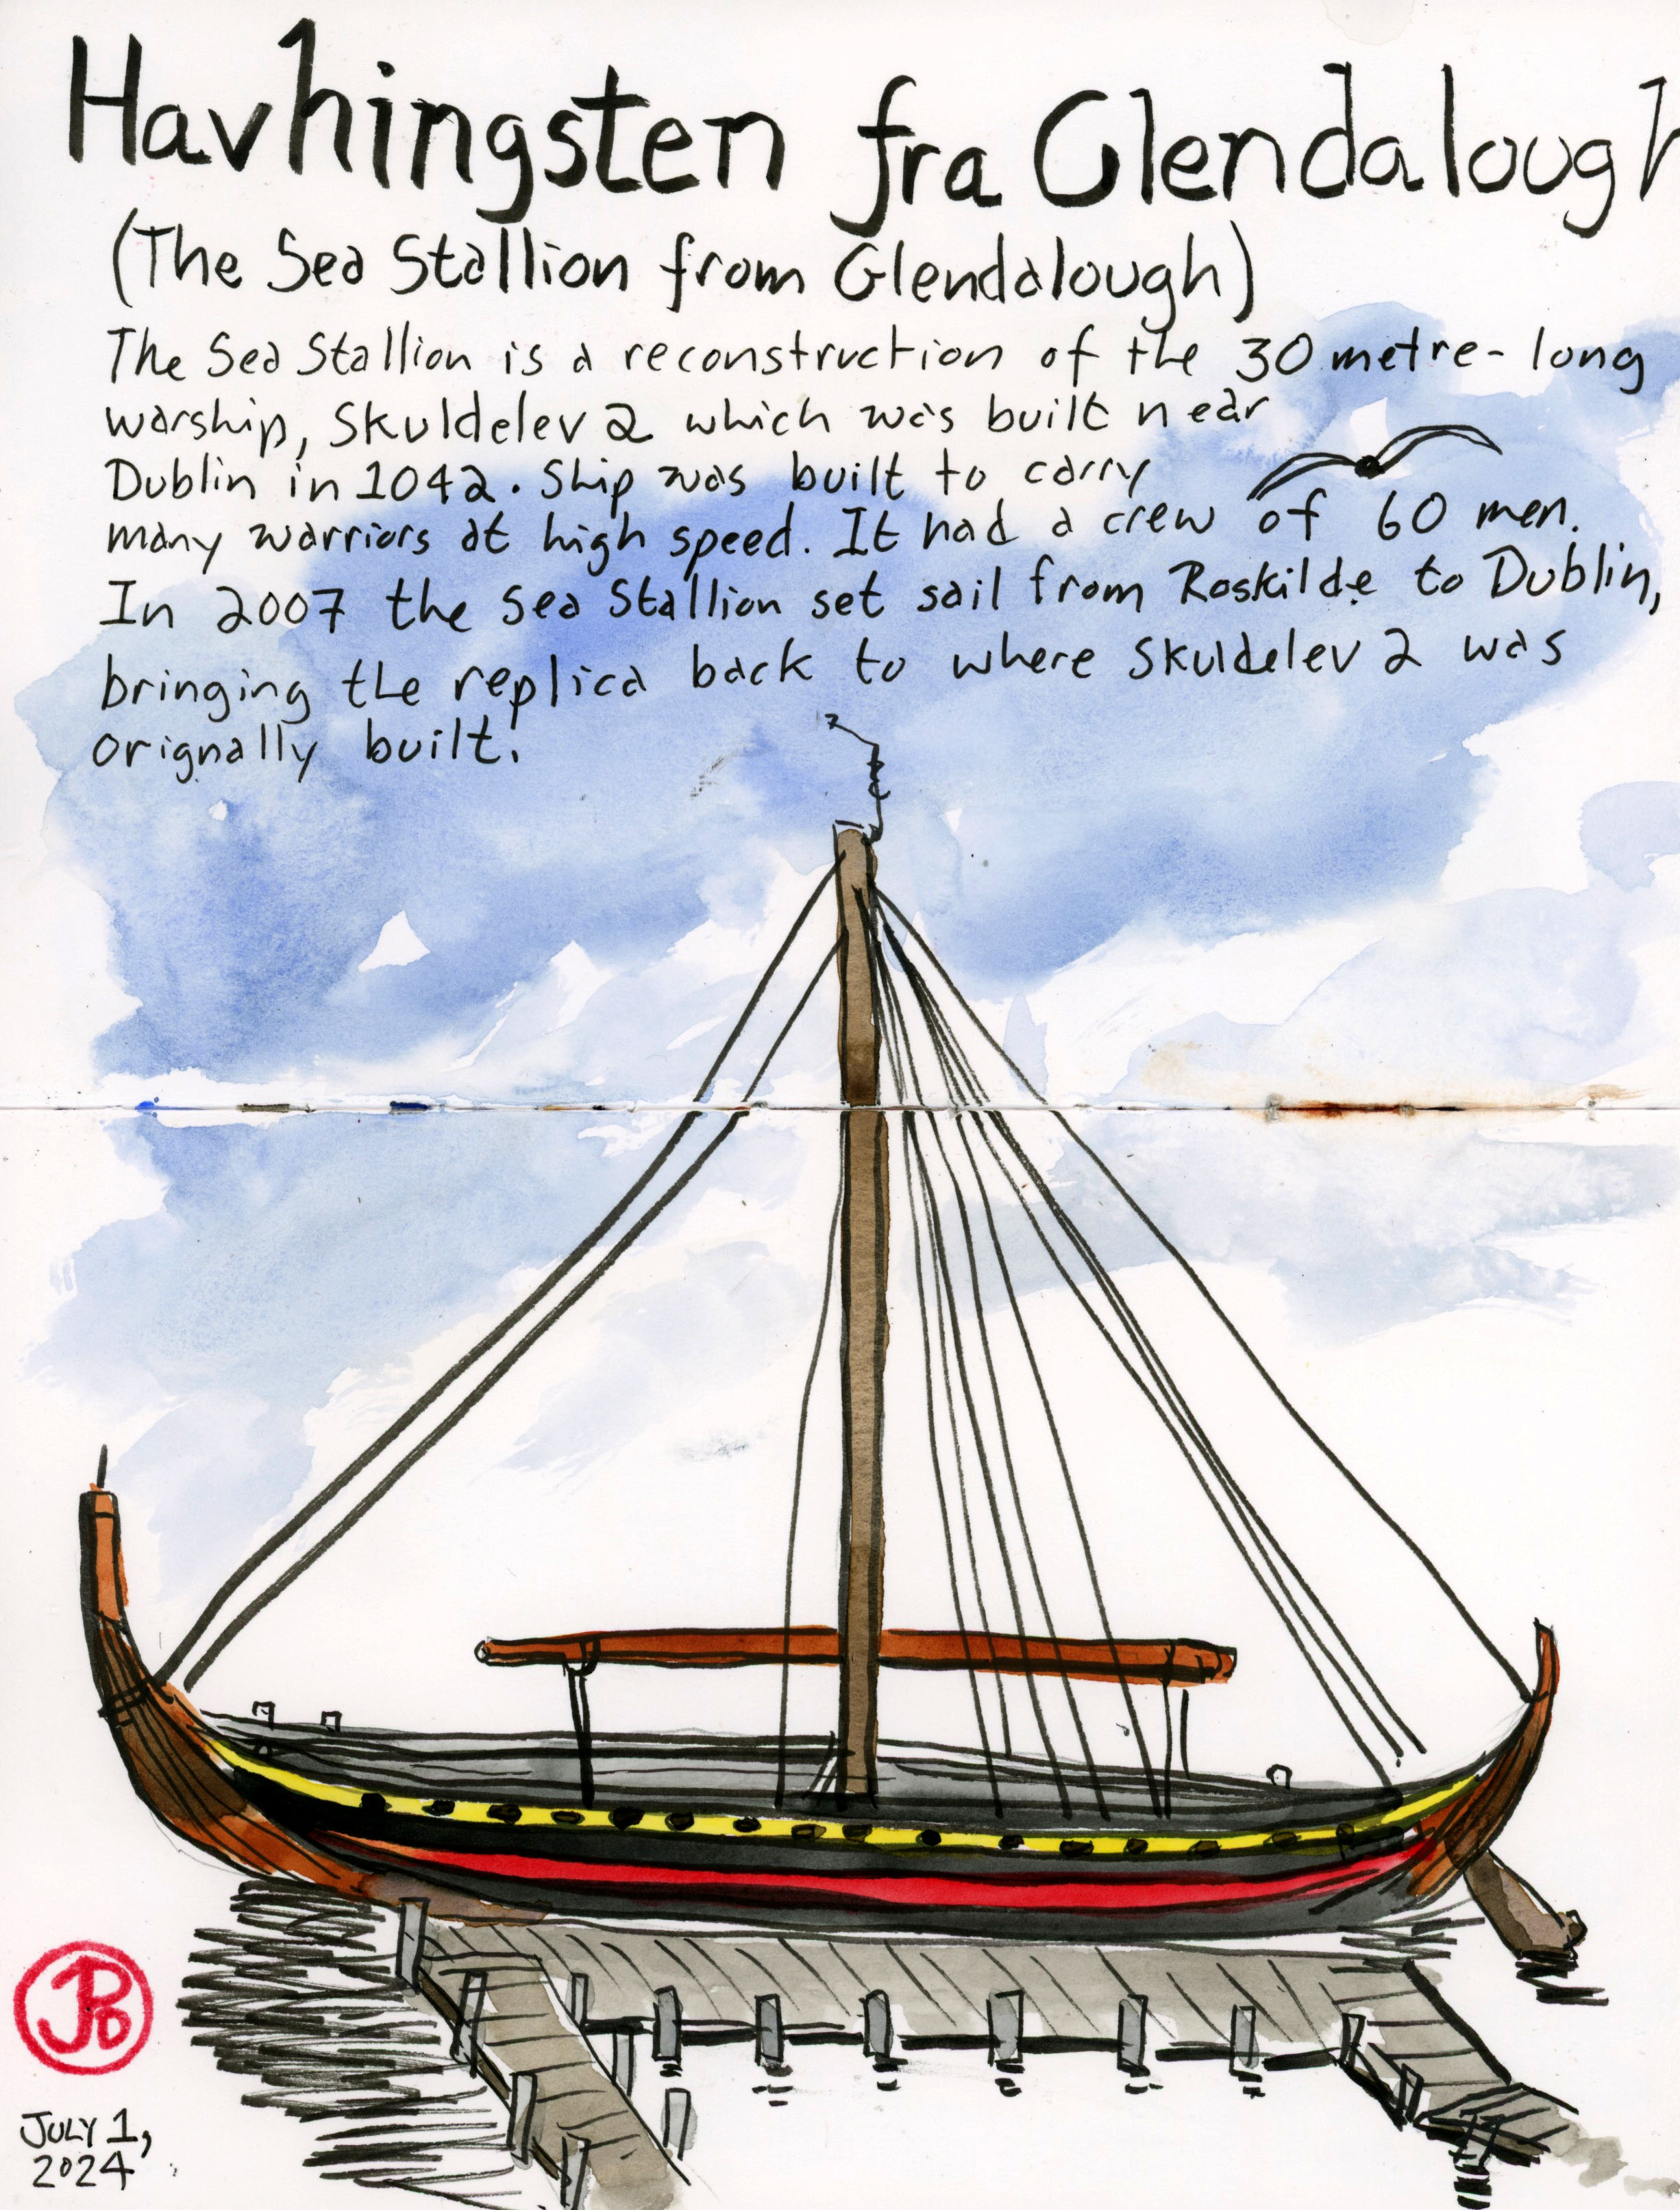 Havhingsten fra Glendalough
(The Sea Stallion from Glendalough)
The Sea Stallion is a reconstruction of the 30 metre-long
warship, Skuldelev 2 which was built near
Dublin in 1042. Ship was built to carry
many warriors at high speed. It had a crew of 60 men.
In 2007 the Sea Stallion set sail from Roskilde to Dublin,
bringing the replica back to where Skuldelev 2 was
orignally built.
JULY 1,
2024